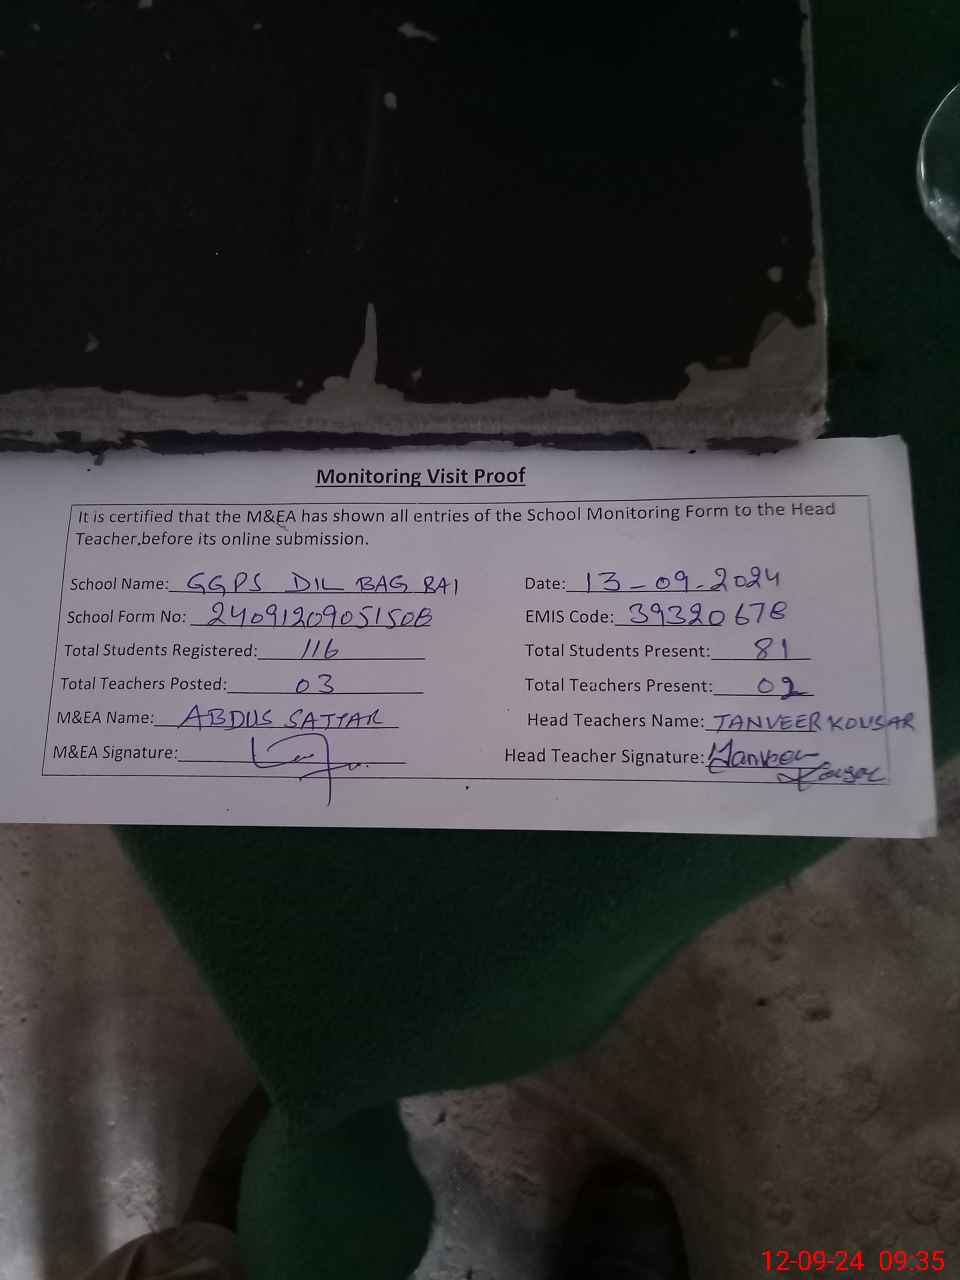 Monitoring Visit Proof
It is certified that the M&EA has shown all entries of the School Monitoring Form to the Head
Teacher,before its online submission.
School Name: GGPS DIL BAG RAI Date: 13-09-2024
School Form No: 24091209051508 EMIS Code: 39320678
Total Students Registered: 116 Total Students Present: 81
Total Teachers Posted: 03 Total Teachers Present: 02
M&EA Name: ABDUS SATTAR Head Teachers Name: TANVEER KOUSAR
M&EA Signature: Head Teacher Signature: Tanveer
Kousar
12-09-24 09:35